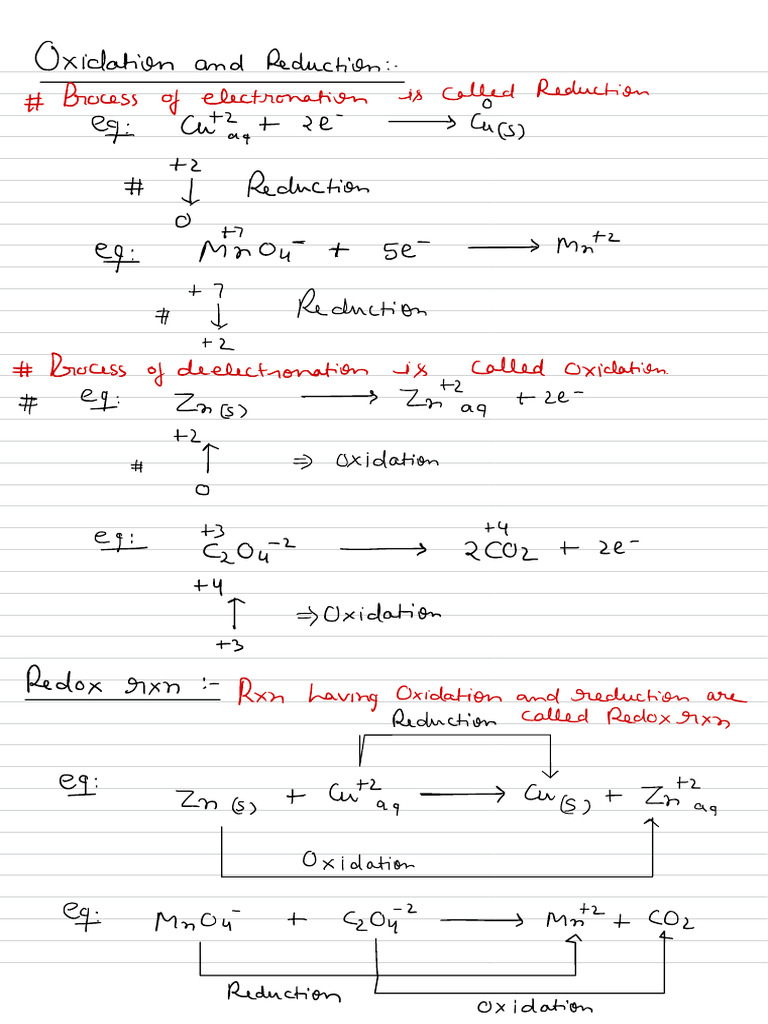 Oxidation and Reduction:-
# Process of electronation is called Reduction
eg: Cu⁺²aq + 2e⁻ ⟶ Cu⁰(s)
+2
# ↓ Reduction
0
+7
eg: MnO₄⁻ + 5e⁻ ⟶ Mn⁺²
+7
# ↓ Reduction
+2
# Process of deelectronation is called Oxidation.
# eg: Zn(s) ⟶ Zn⁺²aq + 2e⁻
+2
# ↑ ⇒ Oxidation
0
+3 +4
eg: C₂O₄⁻² ⟶ 2CO₂ + 2e⁻
+4
↑ ⇒ Oxidation
+3
Redox rxn :- Rxn having Oxidation and reduction are
called Redox rxn
Reduction
eg: Zn(s) + Cu⁺²aq ⟶ Cu(s) + Zn⁺²aq
Oxidation
eg: MnO₄⁻ + C₂O₄⁻² ⟶ Mn⁺² + CO₂
Reduction
Oxidation